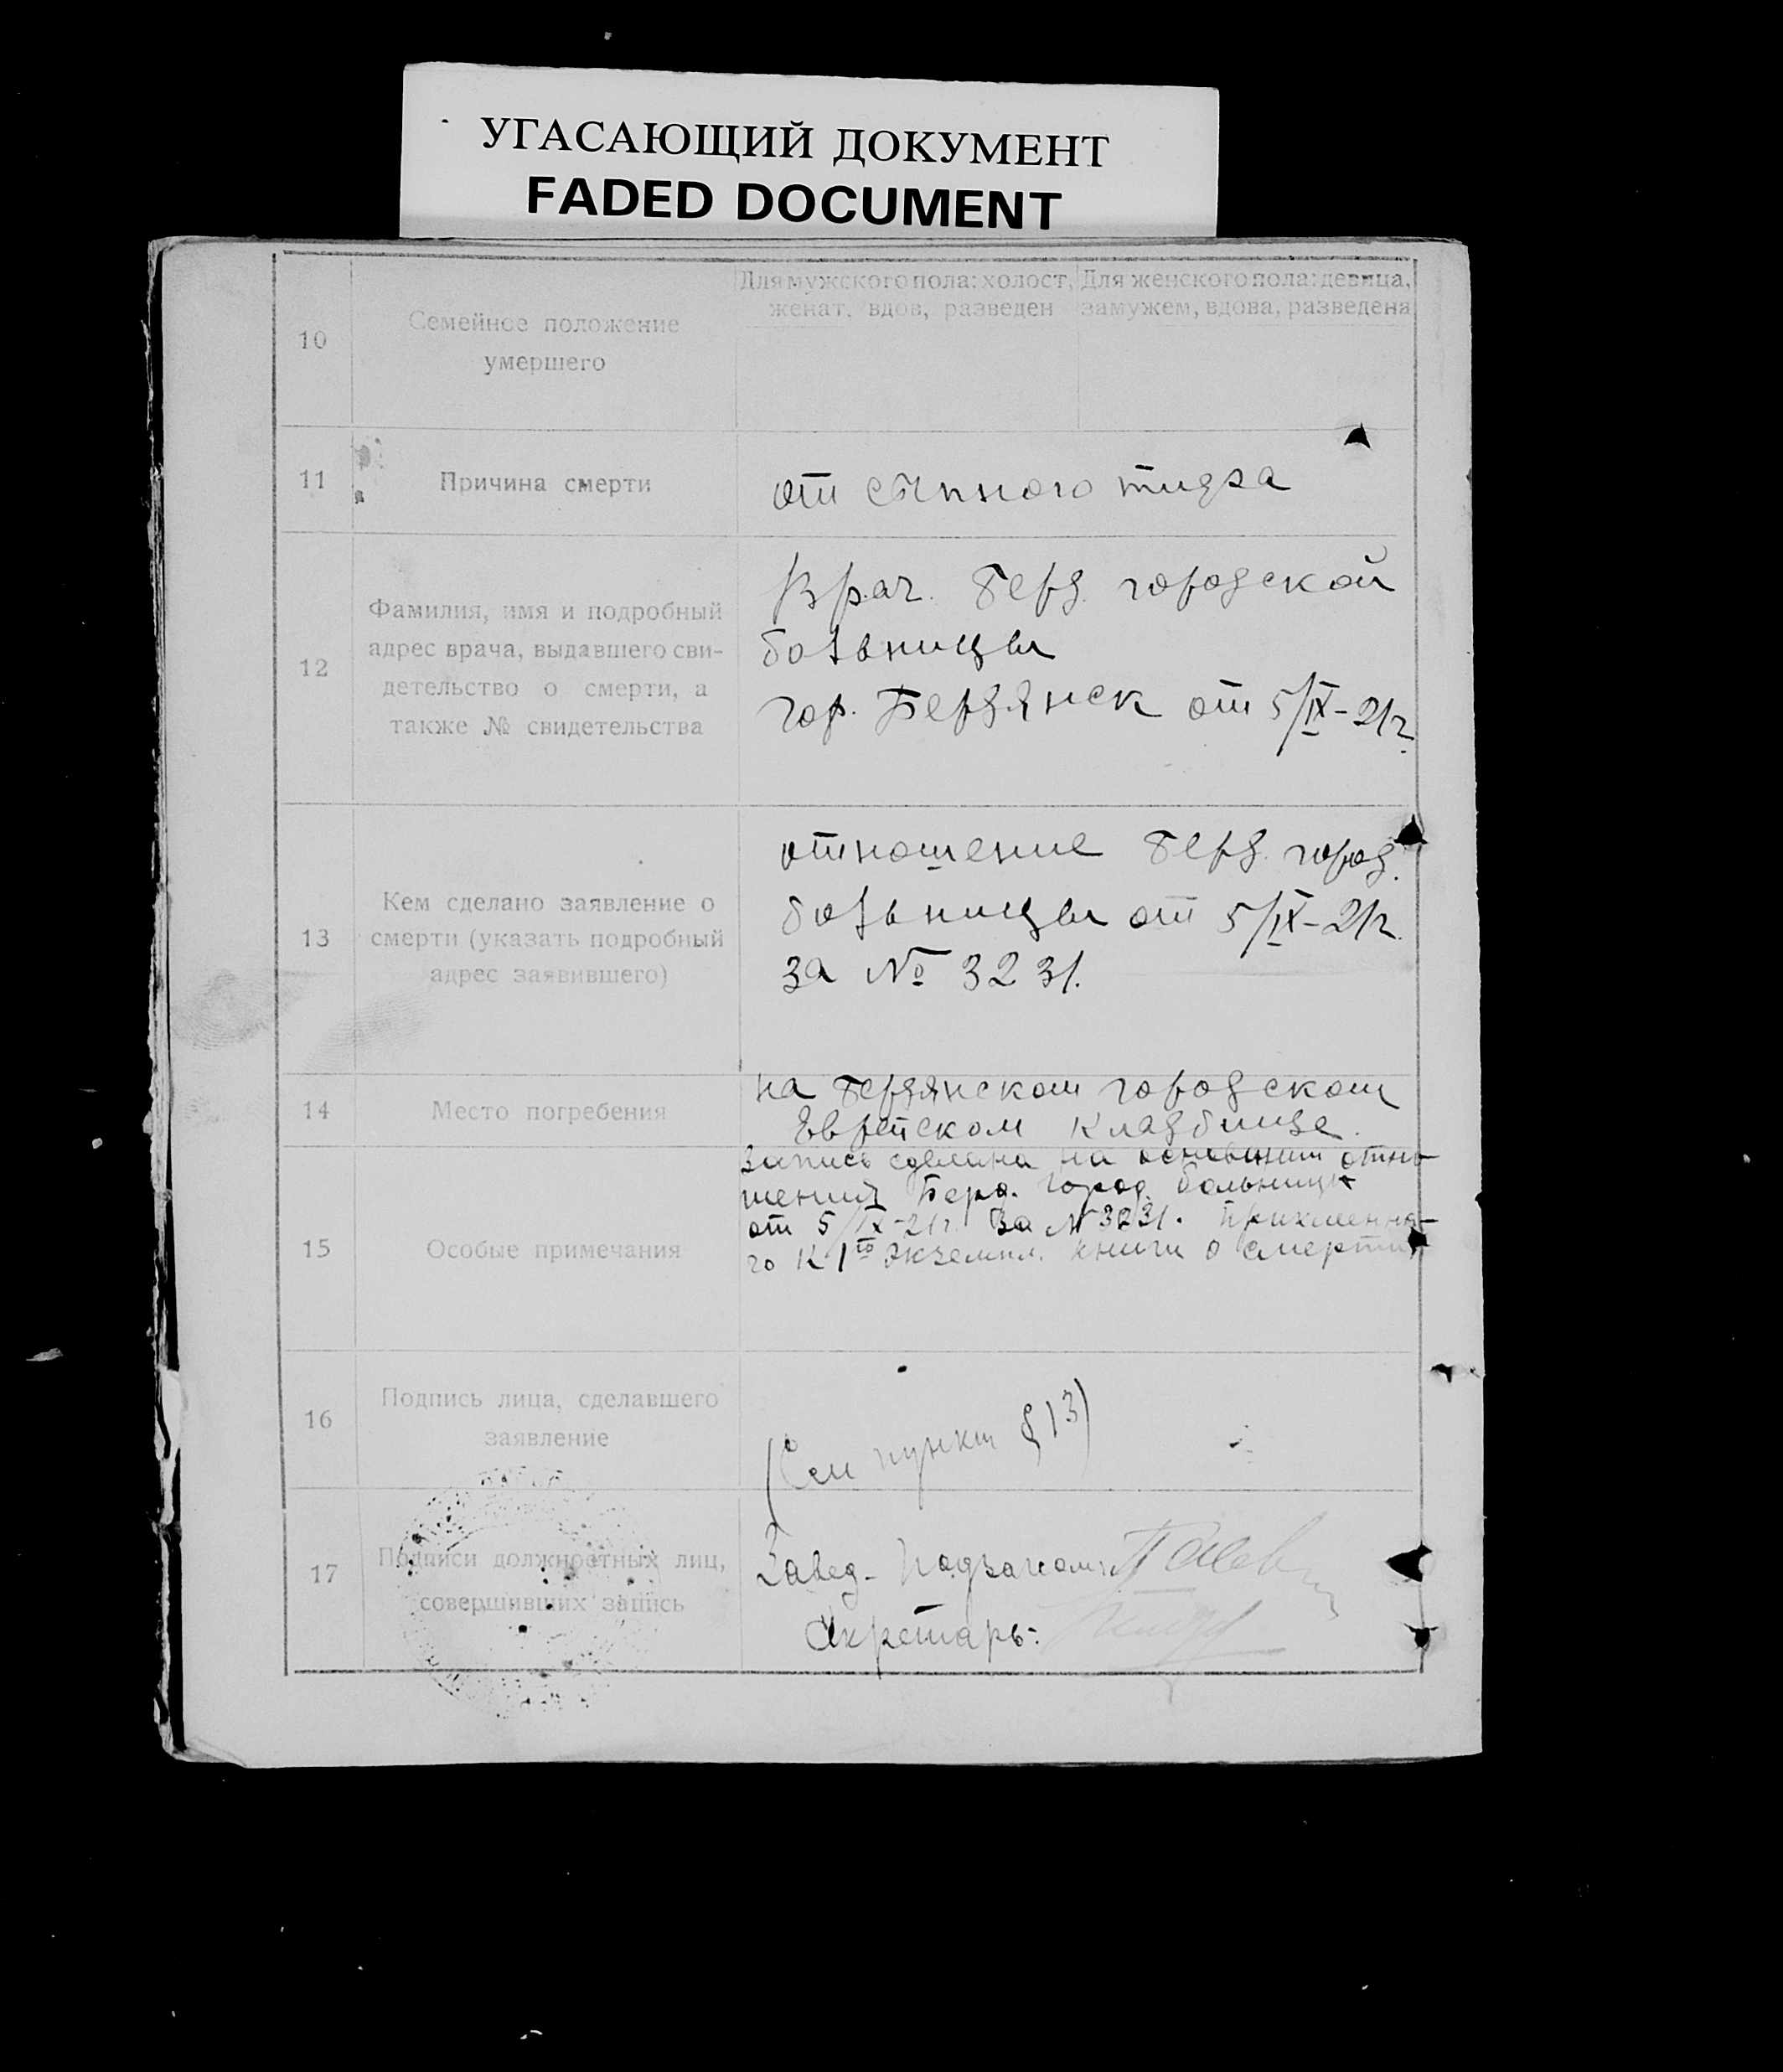 УГАСАЮЩИЙ ДОКУМЕНТ
FADED DOCUMENT
10
Семейное положение
умершего
Для мужского пола: холост,
женат, вдов, разведен
Для женского пола: девица,
замужем, вдова, разведена
11
Причина смерти
от сыпного тифа
12
Фамилия, имя и подробный
адрес врача, выдавшего сви-
детельство о смерти, а
также № свидетельства
Врач. Берд. городской
больницы
гор. Бердянск от 5/IX-21г.
13
Кем сделано заявление о
смерти (указать подробный
адрес заявившего)
отношение Берд. город.
больницы от 5/IX-21г.
за № 3231.
14
Место погребения
на Бердянском городском
Еврейском кладбище.
15
Особые примечания
Запись сделана на основании отно-
шения Берд. город. больницы
от 5/IX-21г. за № 3231.
го к 1го экземпл. книги о смерти
16
Подпись лица, сделавшего
заявление
(См пункт § 13)
17
Подписи должностных лиц,
совершивших запись
Завед.
Секретарь: